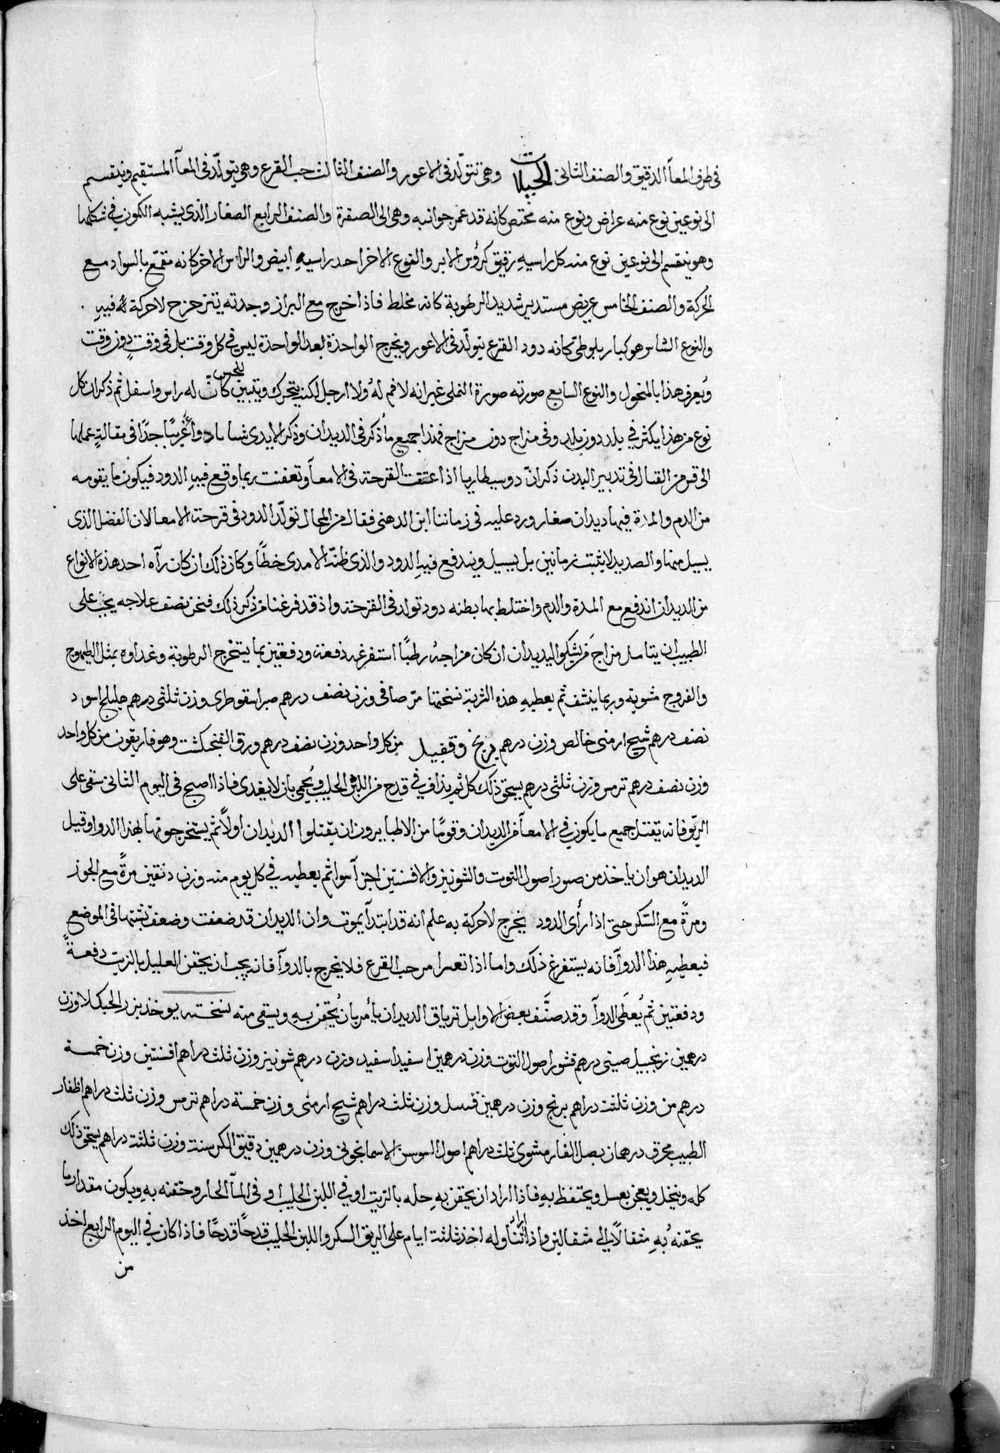 في طرف المعا الدقيق والصنف الثاني الحيات وهي تتولد في الاعور والصنف الثالث حب القرع وهو يتولّد في المعآ المستقيم وينقسم
الى نوعين نوع منه عراض ونوع منه مختص كانه قد غمر جوانبه وهو الى الصفرة والصنف الرابع الصغار الذي يشبه الكمون في شكلها
وهو ينقسم الى نوعين نوع منه كل راسيه رقيق كرؤس الابر والنوع الاخر احد راسيه ابيض والراس الاخر كانه مقمّع بالسواد مع
الحركة والصنف الخامس عريض مستدير شديد الرطوبة كانه مخلط فاذا خرج مع البراز وجدته يتزحزح لا حركة له فيه
والنوع السادس هو كبار بلوطي كانه دود القرع يتولد في الاعور ويخرج الواحدة بعد الواحدة ليس في كل وقت بل في وقت دون وقت
ويُعرف هذا بالمنحول والنوع السابع صورته صورة النملي غير انه لا فم له ولا ارجل لكنه يتحرك ويتبين للحس كانّ له راس واسفل ثم ذكر ان كل
نوع من هذا يكثر في بلد دون بلد وفي مزاج دون مزاج فهذا جميع ما ذكر في الديدان وذكر الايدي شيا واغربيا جدا في مقالة عملها
الى قوم من القنا في تدبير البدن ذكر انّ دوسيطاريا اذا عتقت القرحة في الامعآ وتعفنت ربما وقع فيه الدود فيكون ما يقومه
من الدم والمدة فيها ديدان صغار ورد عليه في زماننا ابن الدهني فقال من المحال تولّد الدود في قرحة الامعا لان الفضل الذي
يسيل منها والصديد لا يثبت زمانين بل يسيل ويندفع فيه الدود والذي ظنّه الامدي خطًا وكان ذلك ان كان رآه احد هذه الانواع
من الديدان اندفع مع المدة والدم واختلط بها بظنه دود تولد في القرحة واذ قد فرغنا من ذكر ذلك فنحن نصف علاجه يجب على
الطبيب ان يتامل مزاج من يشكو الديدان ان كان مزاجهُ رطبًا استفرغه دفعة ودفعتين بما يستخرج الرطوبة وغذاوه بمثل الطيهوج
والفروج مشوية وربما ينشف ثم يعطيه هذه الشربة نسختها مرّ صافي وزن نصف درهم صبر اسقوطرى وزن ثلثي درهم هليلج اسود
نصف درهم شيح ارمني خالص وزن درهم برنج وقنبيل من كل واحد وزن نصف درهم ورق الفنجنكشت وهو فاريقون من كل واحد
وزن نصف درهم ترمس وزن ثلثي درهم يسحق ذلك كله ثم يذاف في قدح من اللبن الحليب ويُحمى بان لا يغدى فاذا اصبح في اليوم الثاني سقى على
الريق فانه يقتل جميع ما يكون في الامعآ من الديدان وقومًا من الاطبا يرون ان يقتلوا الديدان اولاً ثم يستخرجونها بهذا الدوا وقيل
الديدان هو ان ياخذ من صور اصول التوت والشونيز والافسنتين اجزآ سوا ثم يعطيه في كل يوم منه وزن دنقين مرةً مع الجوز
ومرّة مع السّكر حتى اذا رأى الدود يخرج لا حركة به علم انه قد ابتدا يموت وان الديدان قد ضعفت وضعف تشبثها في الموضع
فيعطيه هذا الدوآ فانه يستفرغ ذلك واما اذا تعسرا مر حب القرع فلا يخرج بالدوآ فانه يجب ان يحقن العليل بالزيت دفعةً
ودفعتين ثم يُعطى الدوآ وقد صنّف بعض الاوايل ترياق الديدان يأمر بان يُحتقن به ويسقى منه نسخته يوخذ بزر الحبكلا وزن
درهمين زنجبيل صيني درهم قشور اصول التوت وزن درهمين اسفيداسفيد وزن درهم شونيز وزن ثلث دراهم افسنتين وزن خمسة
درهم من وزن ثلثة دراهم برنج وزن درهمين قسل وزن ثلث دراهم شيح ارمني وزن خمسة دراهم ترمس وزن ثلث دراهم اظفار
الطيب محرق درهمان بصل الفار مشوى ثلث دراهم اصول السوسن الاسمانجوني وزن درهمين دقيق الكرسنة وزن ثلثة دراهم يسحق ذلك
كله وينخل ويعجن بعسل ويحتفظ به فاذا اراد ان يحقن به حله بالزيت او في اللبن الحليب او في المآ الحار وحقنه به ويكون مقدار ما
يحقنهُ بهِ مثقالًا الى مثقالين واذا اراد تناوله اخذ ثلثة ايام على الريق السكر واللبن الحليب قدحًا قدحًا فاذا كان في اليوم الرابع اخذ
من